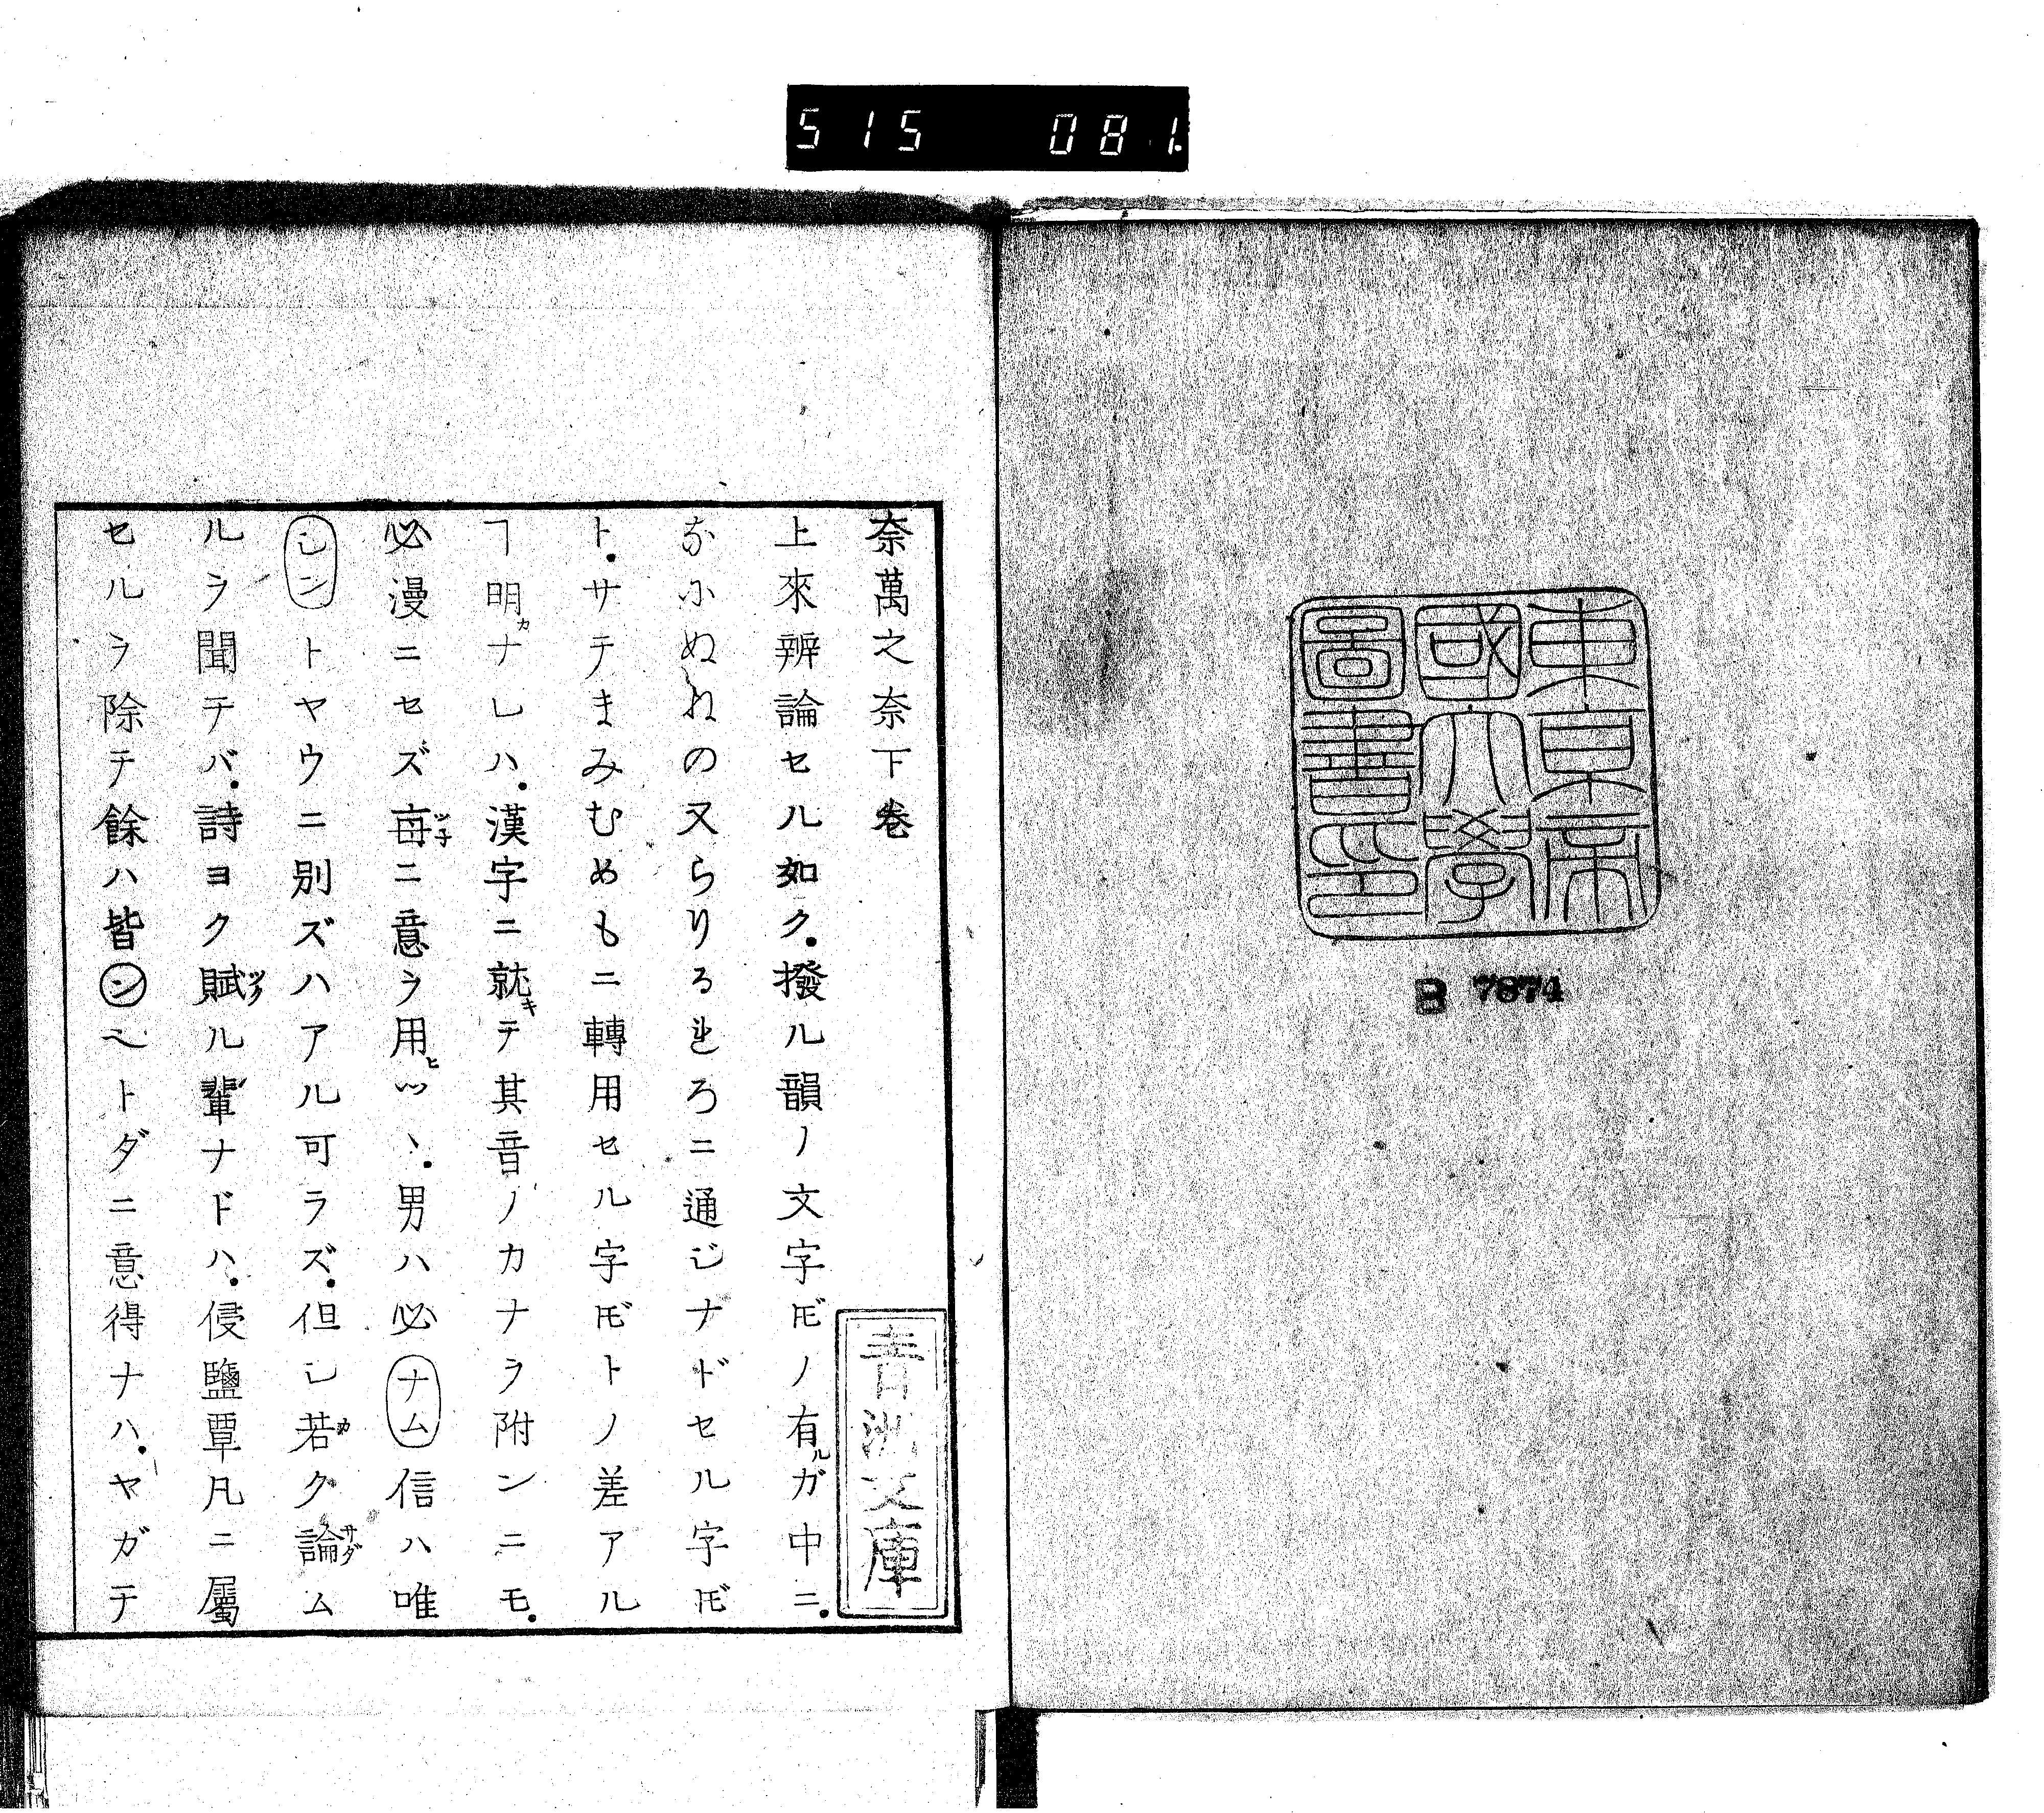 515 081
東京帝
國大學
圖書印
B 7874
奈萬之奈下卷
上來辨論セル如ク.撥ル韻ノ文字𪜈ノ有ルガ中ニ.
なにぬねの又らりるれろニ通ジナドセル字𪜈
ト.サテまみむめもニ轉用セル字𪜈トノ差アル
ヿ明カナレハ.漢字ニ就キテ其音ノカナラ附ンニモ.
必漫ニセズ毎ツ子ニ意ヲ用ヒツヽ.男ハ必ナム信ハ唯
シントヤウニ別ズハアル可ラズ.但シ若カク論サダム
ルヲ聞テバ.詩ヨク賦ツクル輩ナドハ.侵鹽覃凡ニ屬
セルヲ除テ餘ハ皆ンヘトダニ意得ナハ.ヤガテ
青洲文庫